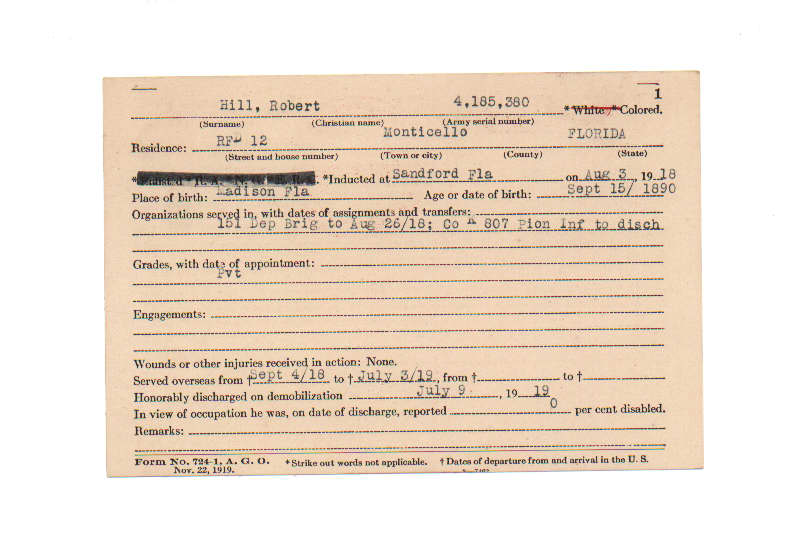 1
Hill, Robert 4,185,380 *White,*Colored.
(Surname) (Christian name) (Army serial number)
Residence: RF 12 Monticello FLORIDA
(Street and house number) (Town or city) (County) (State)
*Inducted at Sandford Fla on Aug 3, 1918
Place of birth: Madison Fla Age or date of birth: Sept 15/ 1890
Organizations served in, with dates of assignments and transfers:
151 Dep Brig to Aug 26/18; Co A 807 Pion Inf to disch
Grades, with date of appointment:
Pvt
Engagements:
Wounds or other injuries received in action: None.
Served overseas from † Sept 4/18 to † July 3/19, from † to †
Honorably discharged on demobilization July 9, 19 19
In view of occupation he was, on date of discharge, reported 0 per cent disabled.
Remarks:
Form No. 724-1, A. G. O. *Strike out words not applicable. † Dates of departure from and arrival in the U. S.
Nov. 22, 1919.